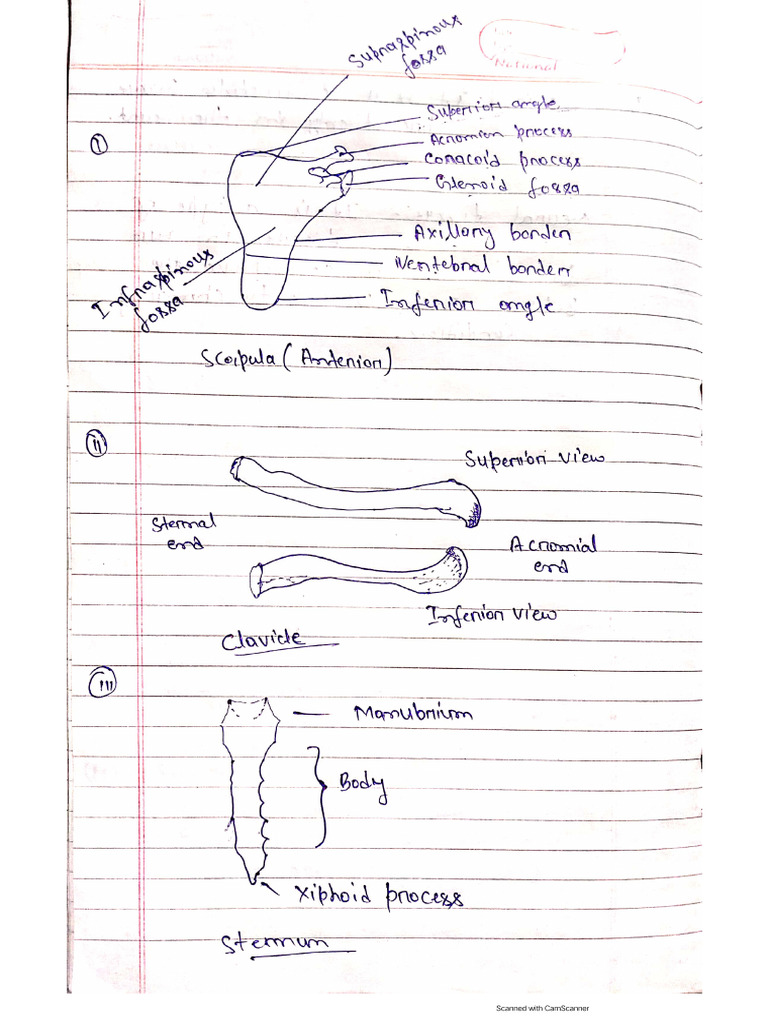 Supraspinous
fossa
National
Superior angle
Acromion process
Coracoid process
Glenoid fossa
Axillary border
Vertebral border
Inferior angle
Infraspinous
fossa
i
Scapula (Anterior)
ii
Superior view
Sternal
end
Acromial
end
Inferior view
Clavicle
iii
Manubrium
Body
Xiphoid process
Sternum
Scanned with CamScanner